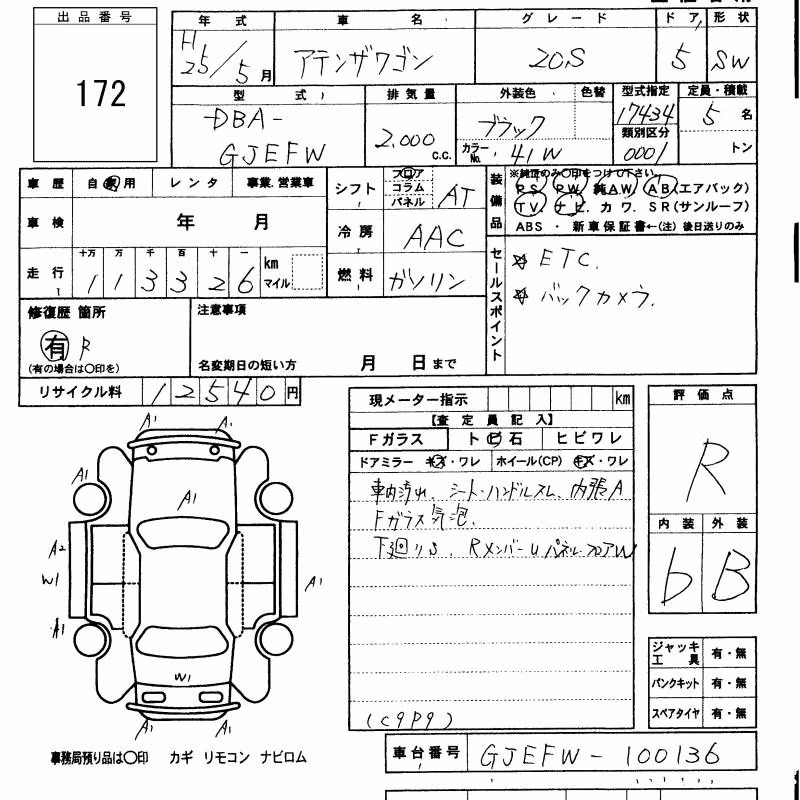 出品番号
172
年式 車名 グレード ドア 形状
H25/5月 アテンザワゴン 20S 5 SW
型式 排気量 外装色 色替 型式指定 定員・積載
DBA-GJEFW 2,000c.c. ブラック 17434 5名
カラーNo. 41W 類別区分 0001 トン
車歴 自家用 レンタ 事業、営業車
シフト フロア コラム パネル AT
装備品 ※純正のみ〇印をつけて下さい。
PS. PW. 純AW. AB(エアバック)
TV. ナビ. カワ. SR(サンルーフ)
ABS ・ 新車保証書←(注) 後日送りのみ
車検 年 月
冷房 AAC
走行 十万 万 千 百 十 一
113326 km マイル
燃料 ガソリン
セールスポイント
☆ ETC.
☆ バックカメラ.
修復歴 箇所
有 R
(有の場合は〇印を)
注意事項
名変期日の短い方 月 日まで
リサイクル料 12540円
現メーター指示 km
【査定員記入】
Fガラス トビ石 ヒビワレ
ドアミラー キズ・ワレ ホイール(CP) キズ・ワレ
車内汚れ、シート・ハンドルスレ、内張A
Fガラス気泡.
下廻りS、RメンバーUパネル・フロアW
(C9P9)
評価点
R
内装 外装
b B
ジャッキ工具 有・無
パンクキット 有・無
スペアタイヤ 有・無
A1 A1
A1
A1
A2
W1
A1
A1
W1
A1 A1
事務局預り品は〇印 カギ リモコン ナビロム
車台番号 GJEFW-100136